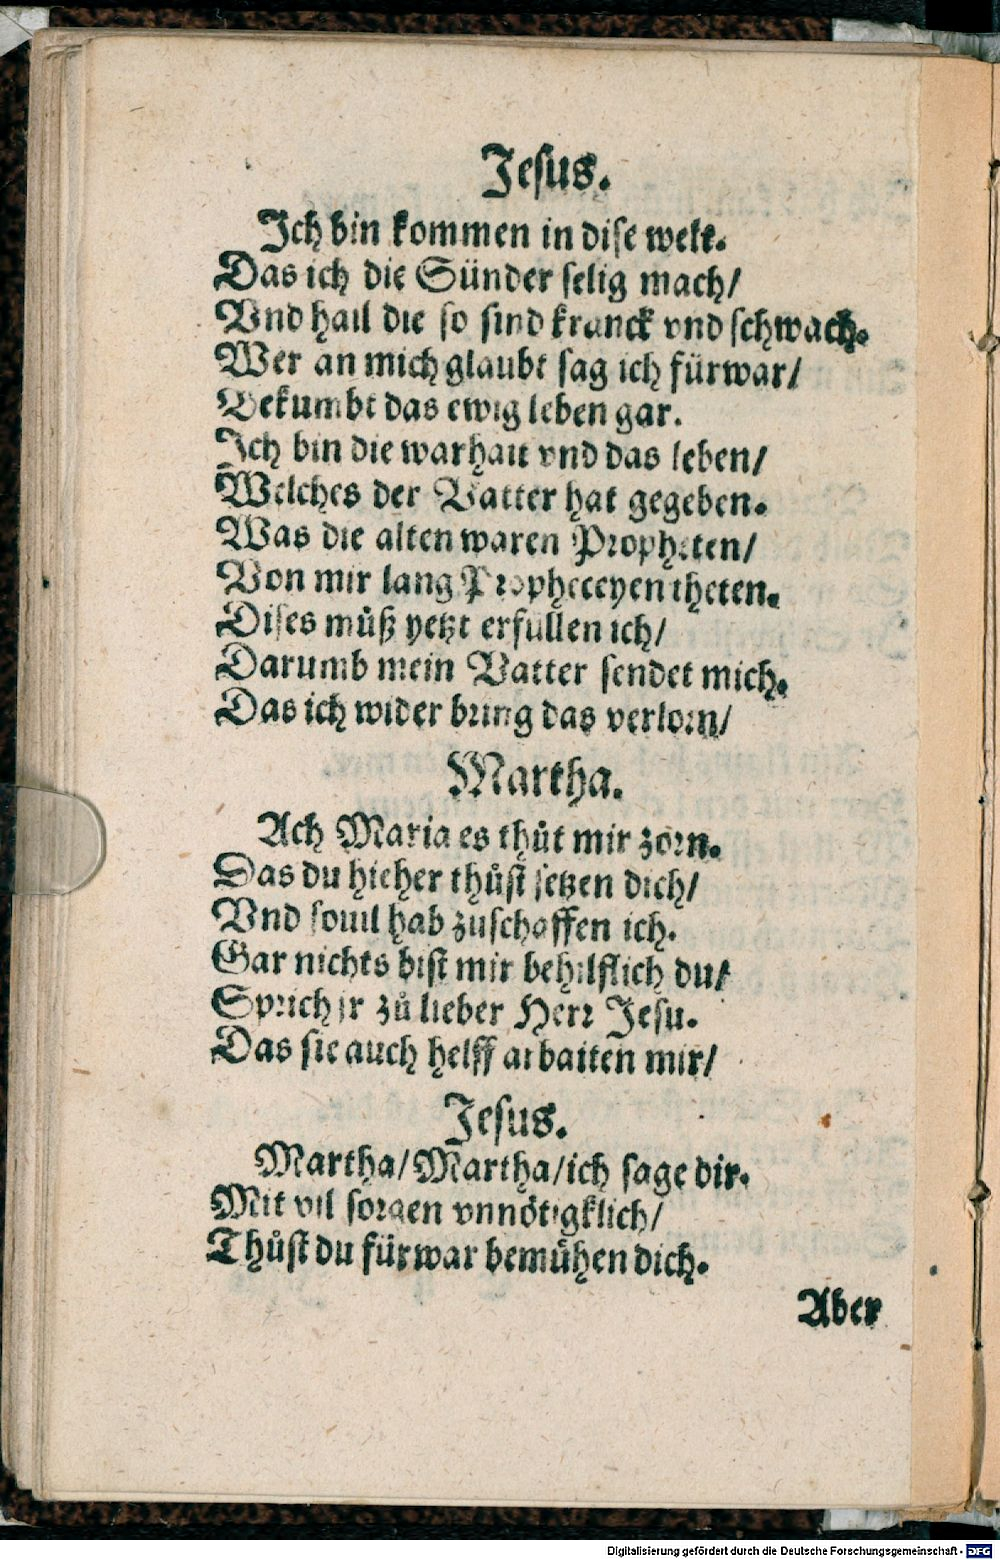 Jesus.
Ich bin kommen in dise welt.
Das ich die Sünder selig mach/
Vnd hail die so sind kranck vnd schwach.
Wer an mich glaubt sag ich fürwar/
Bekumbt das ewig leben gar.
Ich bin die warhait vnd das leben/
Welches der Vatter hat gegeben.
Was die alten waren Propheten/
Von mir lang Propheceyen theten.
Dises můß yetzt erfüllen ich/
Darumb mein Vatter sendet mich.
Das ich wider bring das verlorn/
Martha.
Ach Maria es thůt mir zorn.
Das du hieher thůst setzen dich/
Vnd souil hab zuschaffen ich.
Gar nichts bist mir behilflich du/
Sprich jr zů lieber Herr Jesu.
Das sie auch helff arbaiten mir/
Jesus.
Martha/Martha/ich sage dir.
Mit vil sorgen vnnötigklich/
Thůst du fürwar bemühen dich.
Aber
Digitalisierung gefördert durch die Deutsche Forschungsgemeinschaft - DFG